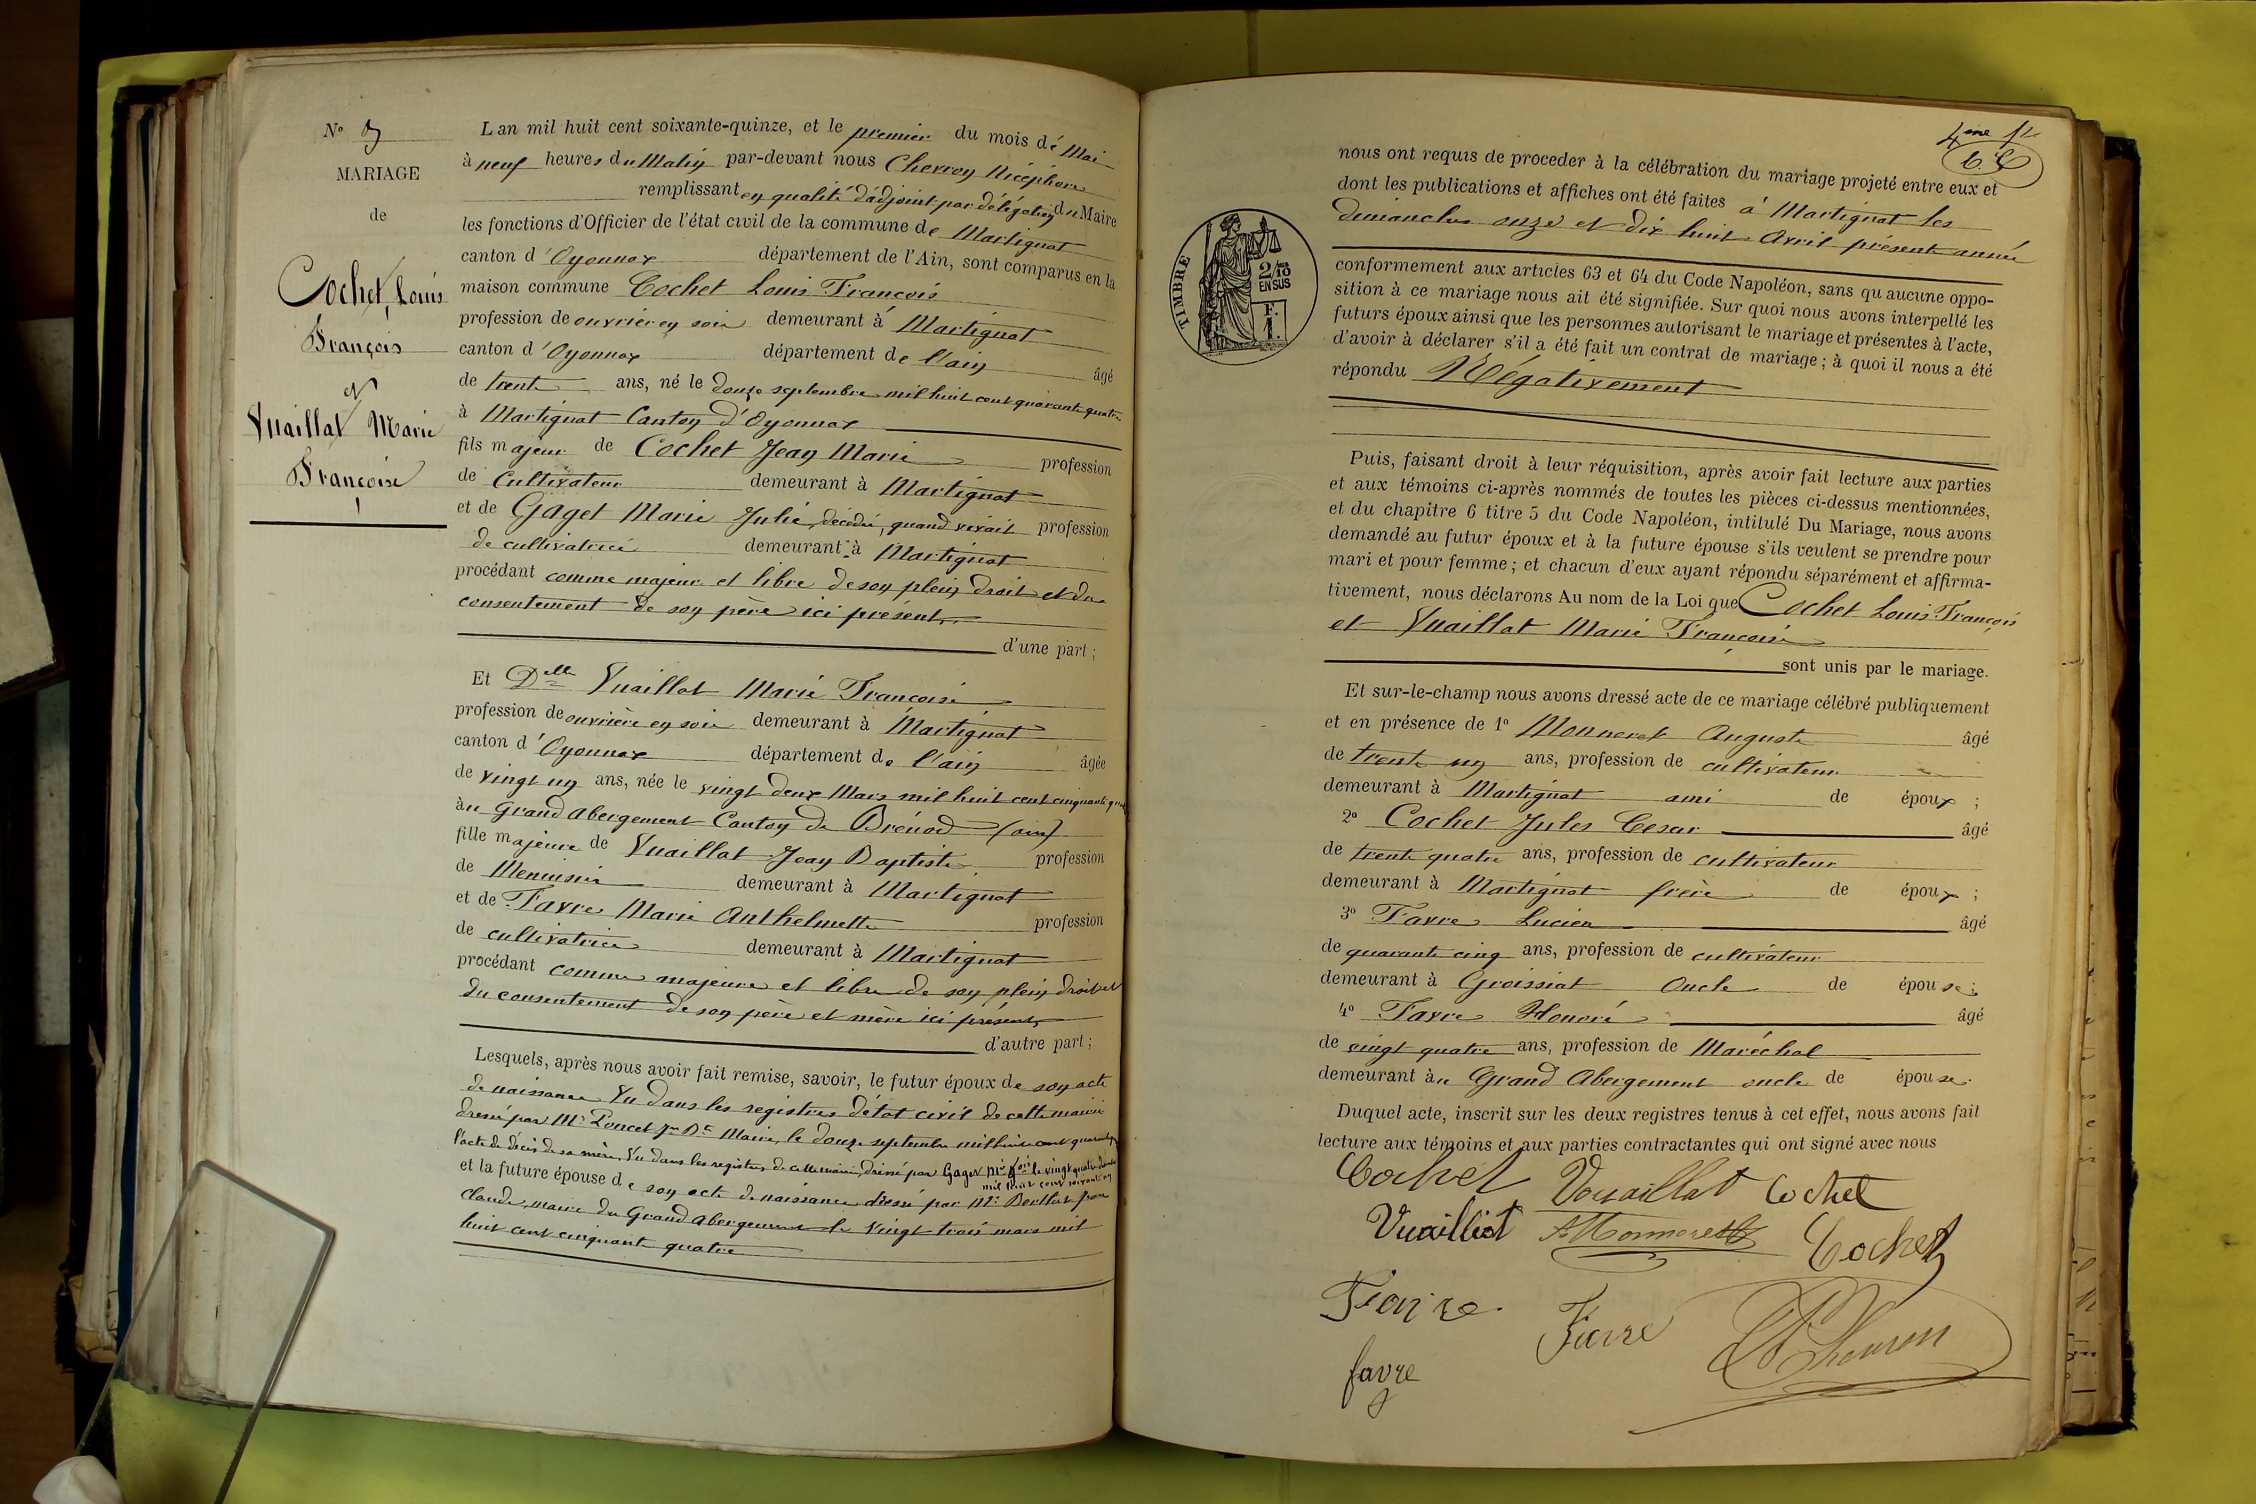 N°
MARIAGE
de
Cochet, Louis
François
et
Vuaillat Marie
Françoise
L'an mil huit cent soixante-quinze, et le premier du mois de Mai
à neuf heures du Matin par-devant nous Cherron Nicéphore
remplissant en qualité d'adjoint par délégation du Maire
les fonctions d'Officier de l'état civil de la commune de Martignat
canton d'Oyonnax département de l'Ain, sont comparus en la
maison commune Cochet Louis François
profession de ouvrier en soie demeurant à Martignat
canton d'Oyonnax département de l'ain âgé
de trente ans, né le douze septembre mil huit cent quarante quatre
à Martignat Canton d'Oyonnax
fils majeur de Cochet Jean Marie profession
de Cultivateur demeurant à Martignat
et de Gaget Marie Julie, décédée, quand vivait profession
de cultivatrice demeurant à Martignat
procédant comme majeur et libre de son plein droit et du
consentement de son père ici présent,
d'une part;
Et Delle Vuaillat Marie Françoise
profession de ouvrière en soie demeurant à Martignat
canton d'Oyonnax département de l'ain âgée
de vingt un ans, née le vingt deux Mars mil huit cent cinquante quatre
au Grand Abergement Canton de Brénod (ain)
fille majeure de Vuaillat Jean Baptiste profession
de Menuisier demeurant à Martignat
et de Favre Marie Anthelmette profession
de cultivatrice demeurant à Martignat
procédant comme majeure et libre de son plein droit et
du consentement de son père et mère ici présents,
d'autre part;
Lesquels, après nous avoir fait remise, savoir, le futur époux de son acte
de naissance Vu dans les registres d'état civil de cette mairie
dressé par Mr Poncet Maire, le douze septembre mil huit cent quarante
l'acte de décès de sa mère, Vu dans les registres de cette mairie, dressé par Gaget le vingt quatre
mil huit cent soixante
et la future épouse de son acte de naissance dressé par Mr Berthet
Claude, maire du Grand Abergement le vingt trois mars mil
huit cent cinquante quatre
4me
nous ont requis de proceder à la célébration du mariage projeté entre eux et
dont les publications et affiches ont été faites à Martignat les
dimanches onze et dix huit Avril présente année
TIMBRE
2/10
EN SUS
F.
1.
conformement aux articles 63 et 64 du Code Napoléon, sans qu'aucune oppo-
sition à ce mariage nous ait été signifiée. Sur quoi nous avons interpellé les
futurs époux ainsi que les personnes autorisant le mariage et présentes à l'acte,
d'avoir à déclarer s'il a été fait un contrat de mariage; à quoi il nous a été
répondu Négativement
Puis, faisant droit à leur réquisition, après avoir fait lecture aux parties
et aux témoins ci-après nommés de toutes les pièces ci-dessus mentionnées,
et du chapitre 6 titre 5 du Code Napoléon, intitulé Du Mariage, nous avons
demandé au futur époux et à la future épouse s'ils veulent se prendre pour
mari et pour femme; et chacun d'eux ayant répondu séparément et affirma-
tivement, nous déclarons Au nom de la Loi que Cochet Louis François
et Vuaillat Marie Françoise
sont unis par le mariage.
Et sur-le-champ nous avons dressé acte de ce mariage célébré publiquement
et en présence de 1° Monneret Auguste âgé
de trente un ans, profession de cultivateur
demeurant à Martignat ami de époux;
2° Cochet Jules Cesar âgé
de trente quatre ans, profession de cultivateur
demeurant à Martignat frère de époux;
3° Favre Lucien âgé
de quarante cinq ans, profession de cultivateur
demeurant à Groissiat oncle de épouse;
4° Favre Honoré âgé
de vingt quatre ans, profession de Maréchal
demeurant au Grand Abergement oncle de épouse.
Duquel acte, inscrit sur les deux registres tenus à cet effet, nous avons fait
lecture aux témoins et aux parties contractantes qui ont signé avec nous
Cochet Vouaillat Cochet
Vuaillat AMonneret Cochet
Favre
Favre
favre